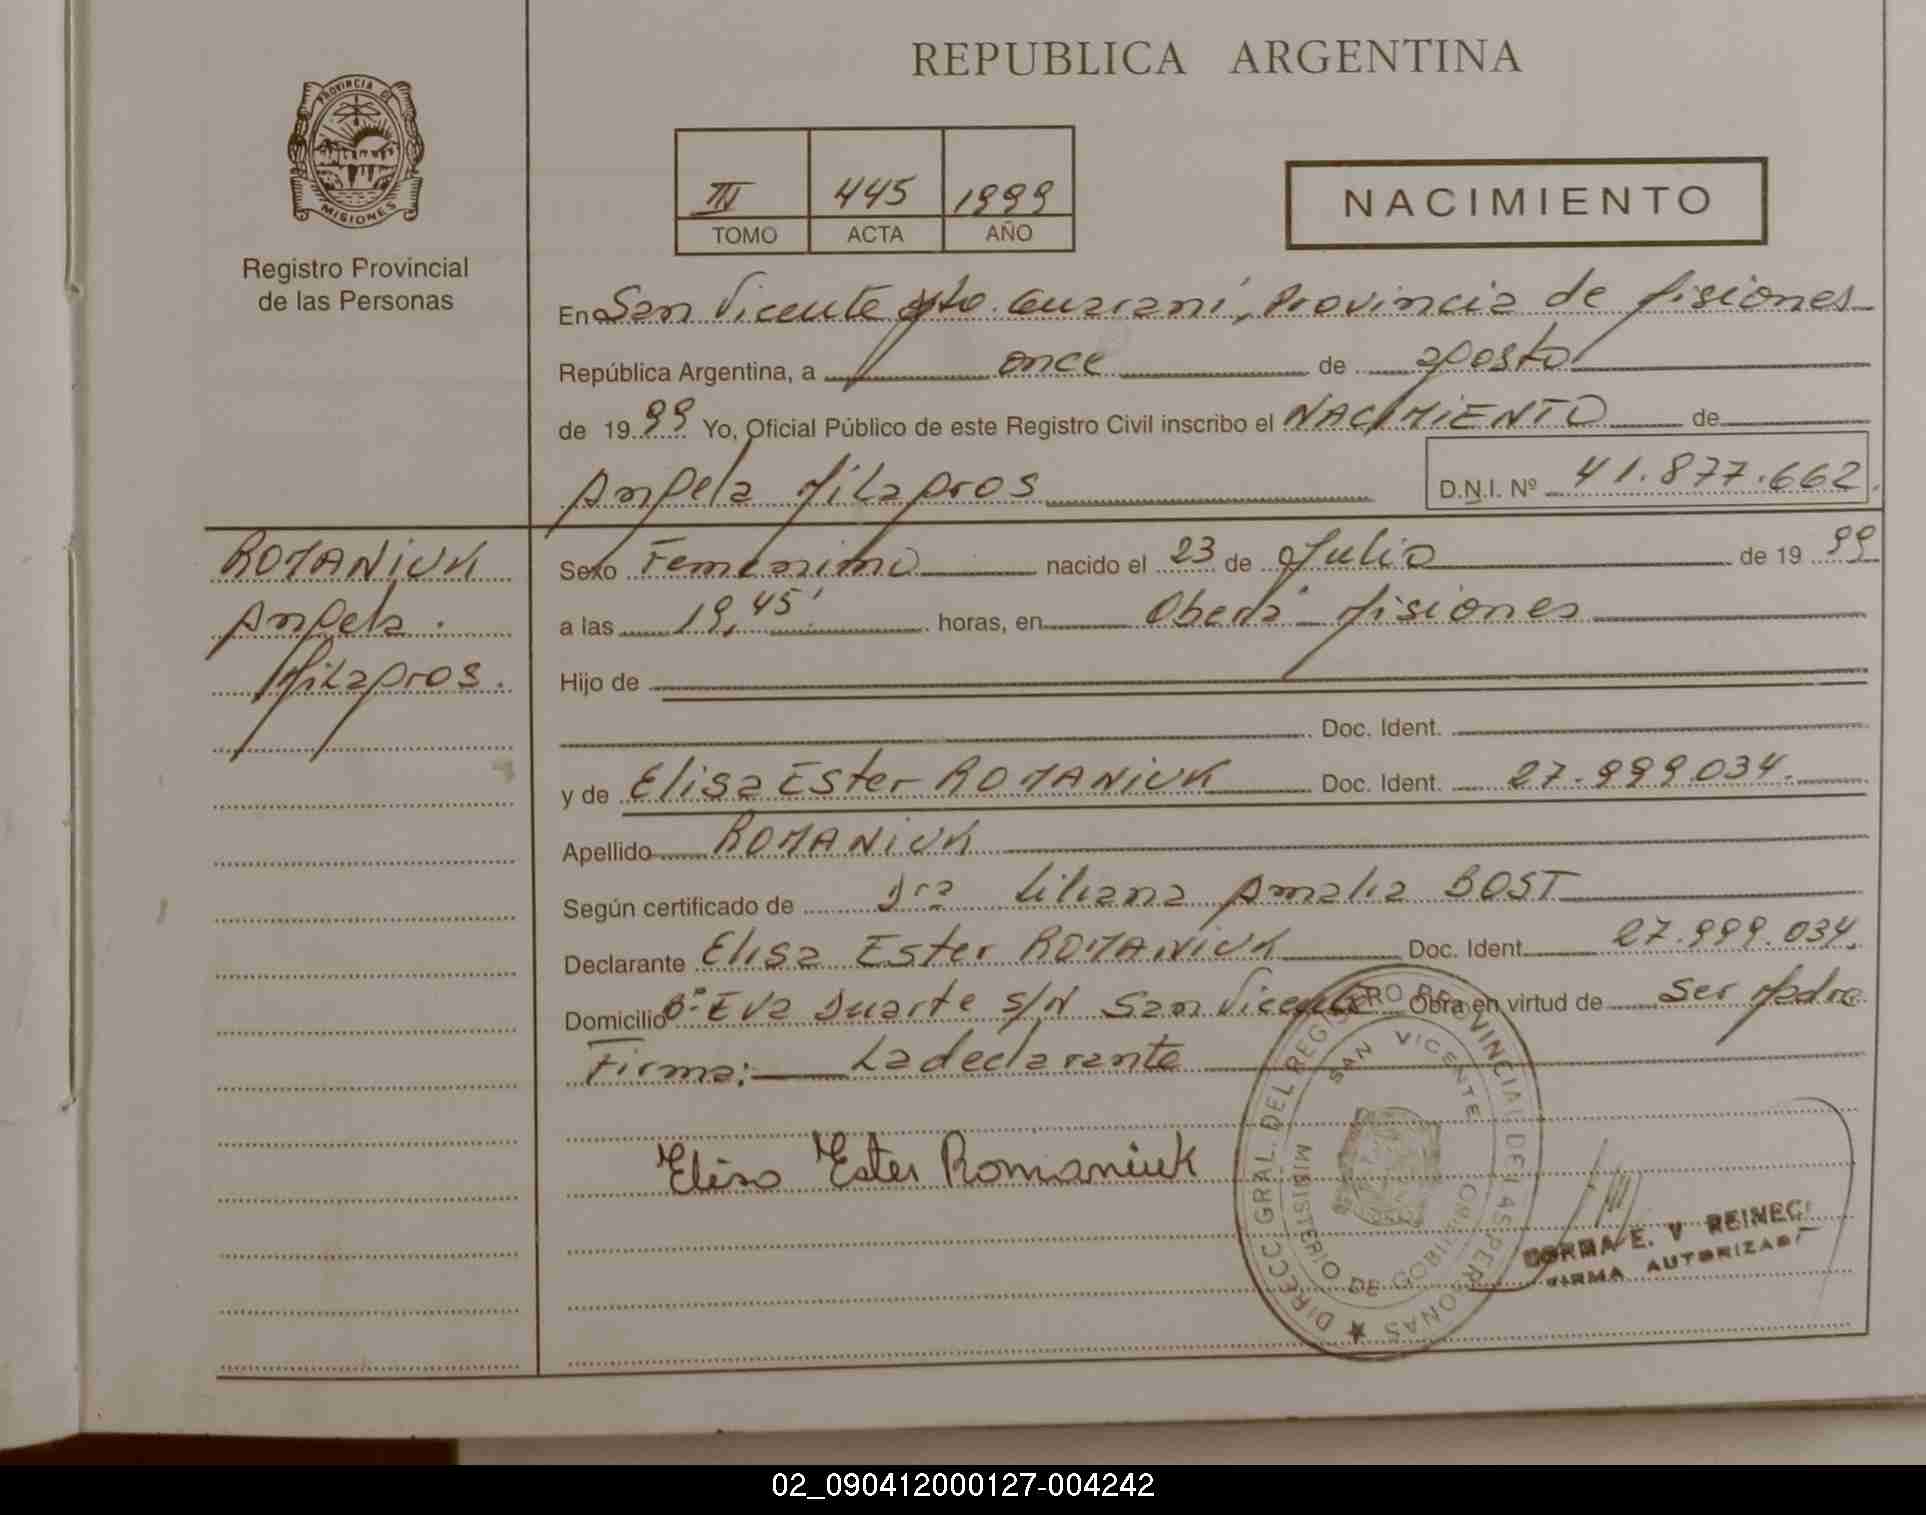 REPUBLICA ARGENTINA
PROVINCIA DE
MISIONES
Registro Provincial
de las Personas
III 445 1999
TOMO ACTA AÑO
NACIMIENTO
En San Vicente Dto. Guaraní, Provincia de Misiones
República Argentina, a once de agosto
de 1999 Yo, Oficial Público de este Registro Civil inscribo el NACIMIENTO de
Angela Milagros D.N.I. Nº 41.877.662.
ROMANIUK
Angela.
Milagros.
Sexo Femenino nacido el 23 de Julio de 1999
a las 19,45' horas, en Oberá Misiones
Hijo de
Doc. Ident.
y de Elisa Ester ROMANIUK Doc. Ident. 27.999.034.
Apellido ROMANIUK
Según certificado de Dra Liliana Amalia BOST
Declarante Elisa Ester ROMANIUK Doc. Ident. 27.999.034.
Domicilio Bº Eva Duarte s/N San Vicente Obra en virtud de Ser Madre
Firma: La declarante
Elisa Ester Romaniuk
DIRECC GRAL. DEL REGISTRO PROVINCIAL DE LAS PERSONAS
SAN VICENTE
MINISTERIO DE GOBIERNO
E. V. REINECK
FIRMA AUTORIZADA
02_090412000127-004242